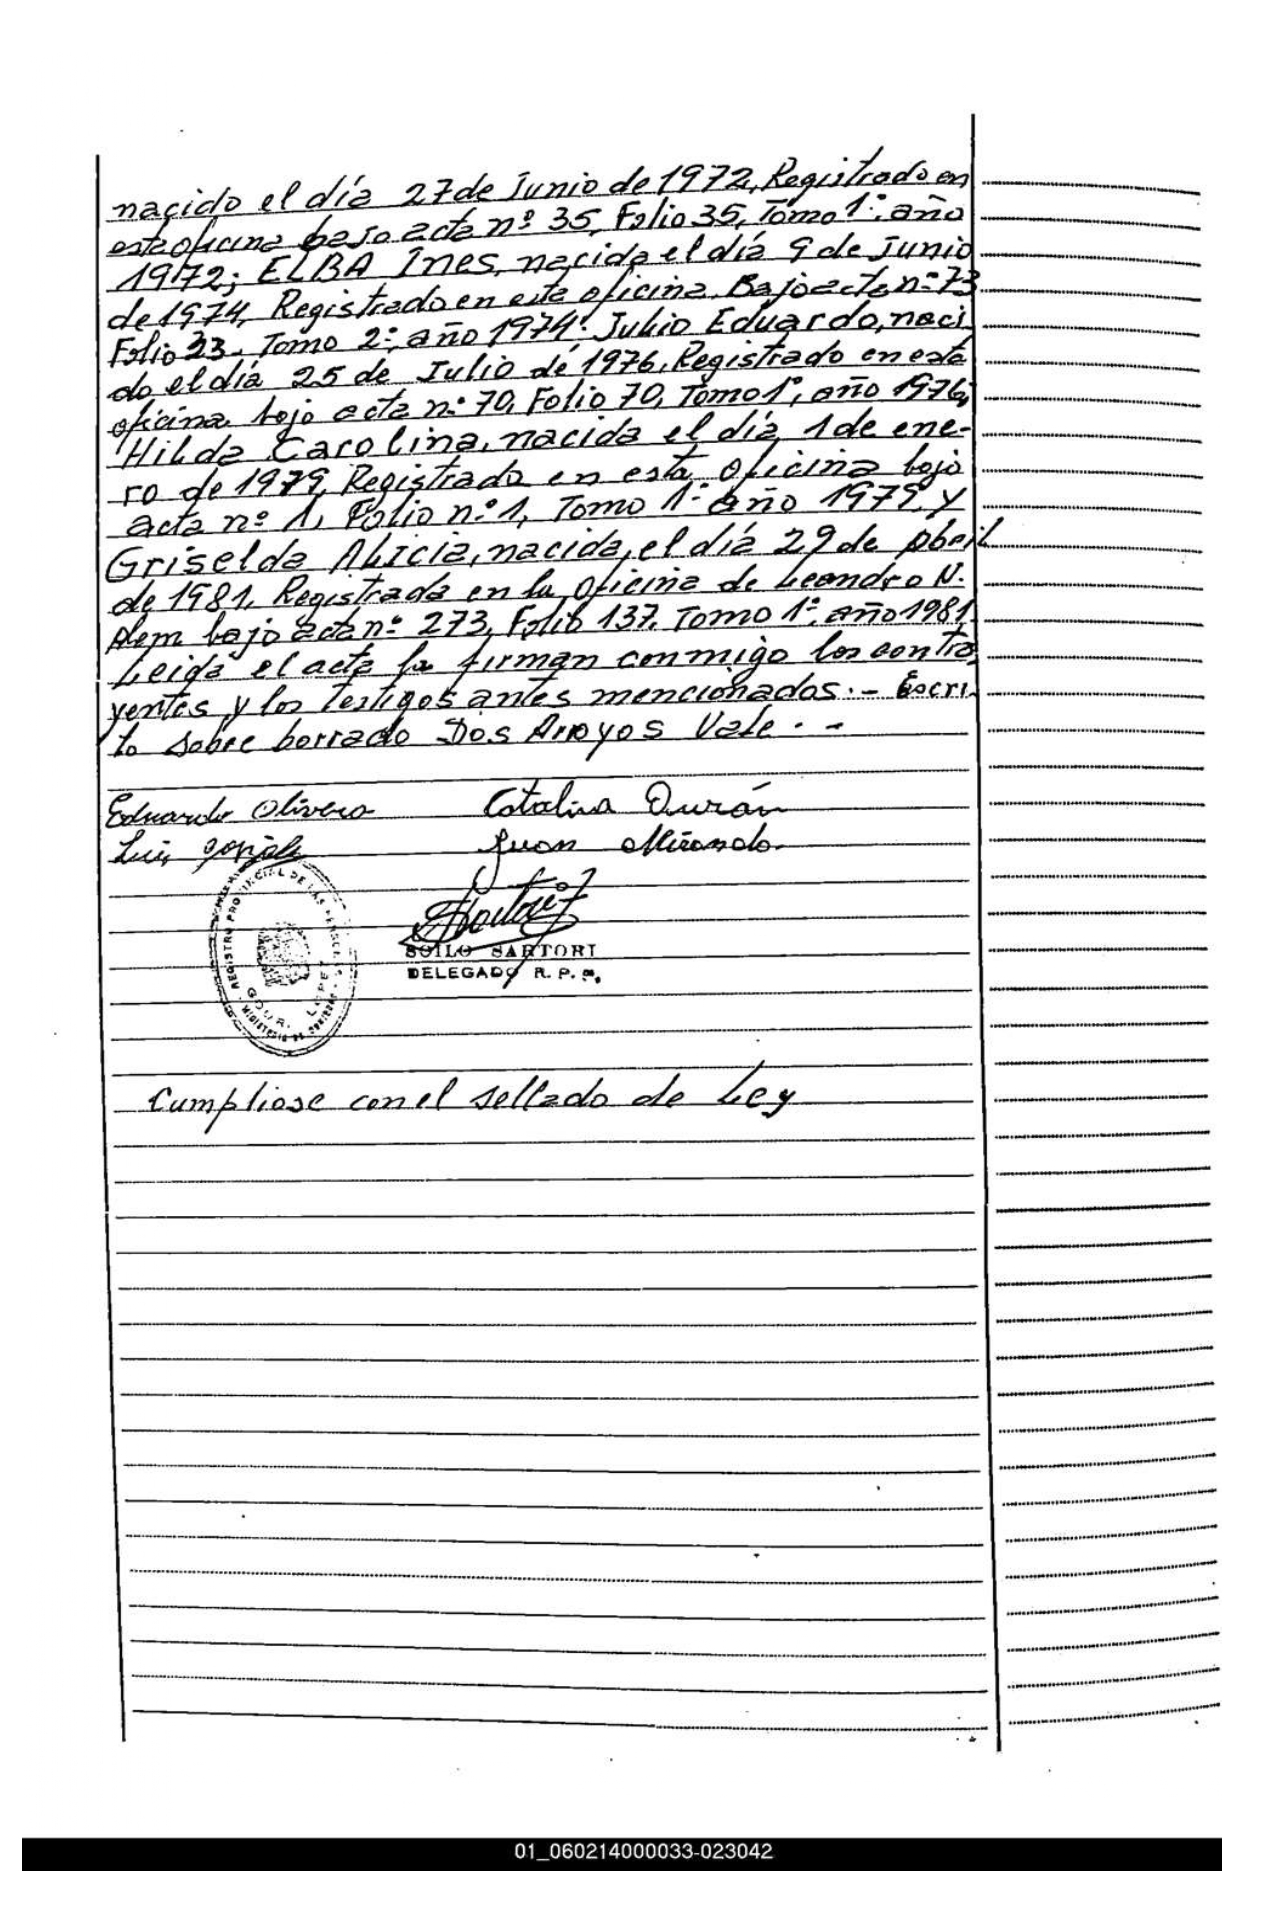 nacido el día 27 de Junio de 1972, Registrado en
esta oficina bajo acta nº 35, Folio 35, Tomo 1º, año
1972; ELBA Ines, nacida el día 9 de Junio
de 1974, Registrado en esta oficina Bajo acta nº 73
Folio 23, Tomo 2º, año 1974. Julio Eduardo, naci
do el día 25 de Julio de 1976, Registrado en esta
oficina bajo acta nº 70, Folio 70, Tomo 1º, año 1976,
Hilda Carolina, nacida el día 1 de ene-
ro de 1979, Registrada en esta oficina bajo
acta nº 1, Folio nº 1, Tomo 1º año 1979, y
Griselda Alicia, nacida, el día 29 de Abril
de 1981, Registrada en la oficina de Leandro N.
Alem bajo acta nº 273, Folio 137, Tomo 1º, año 1981.
Leida el acta la firman conmigo los contra
yentes y los testigos antes mencionados.- Escri
to sobre borrado Dos Arroyos Vale.-
Eduardo Olivera Catalina Durán
Luis Juan Miranda.
REGISTRO PROVINCIAL DE LAS PERSONAS
GDOR. LOPEZ
SOILO SARTORI
DELEGADO R. P. P.
Cumpliose con el sellado de Ley
01_060214000033-023042